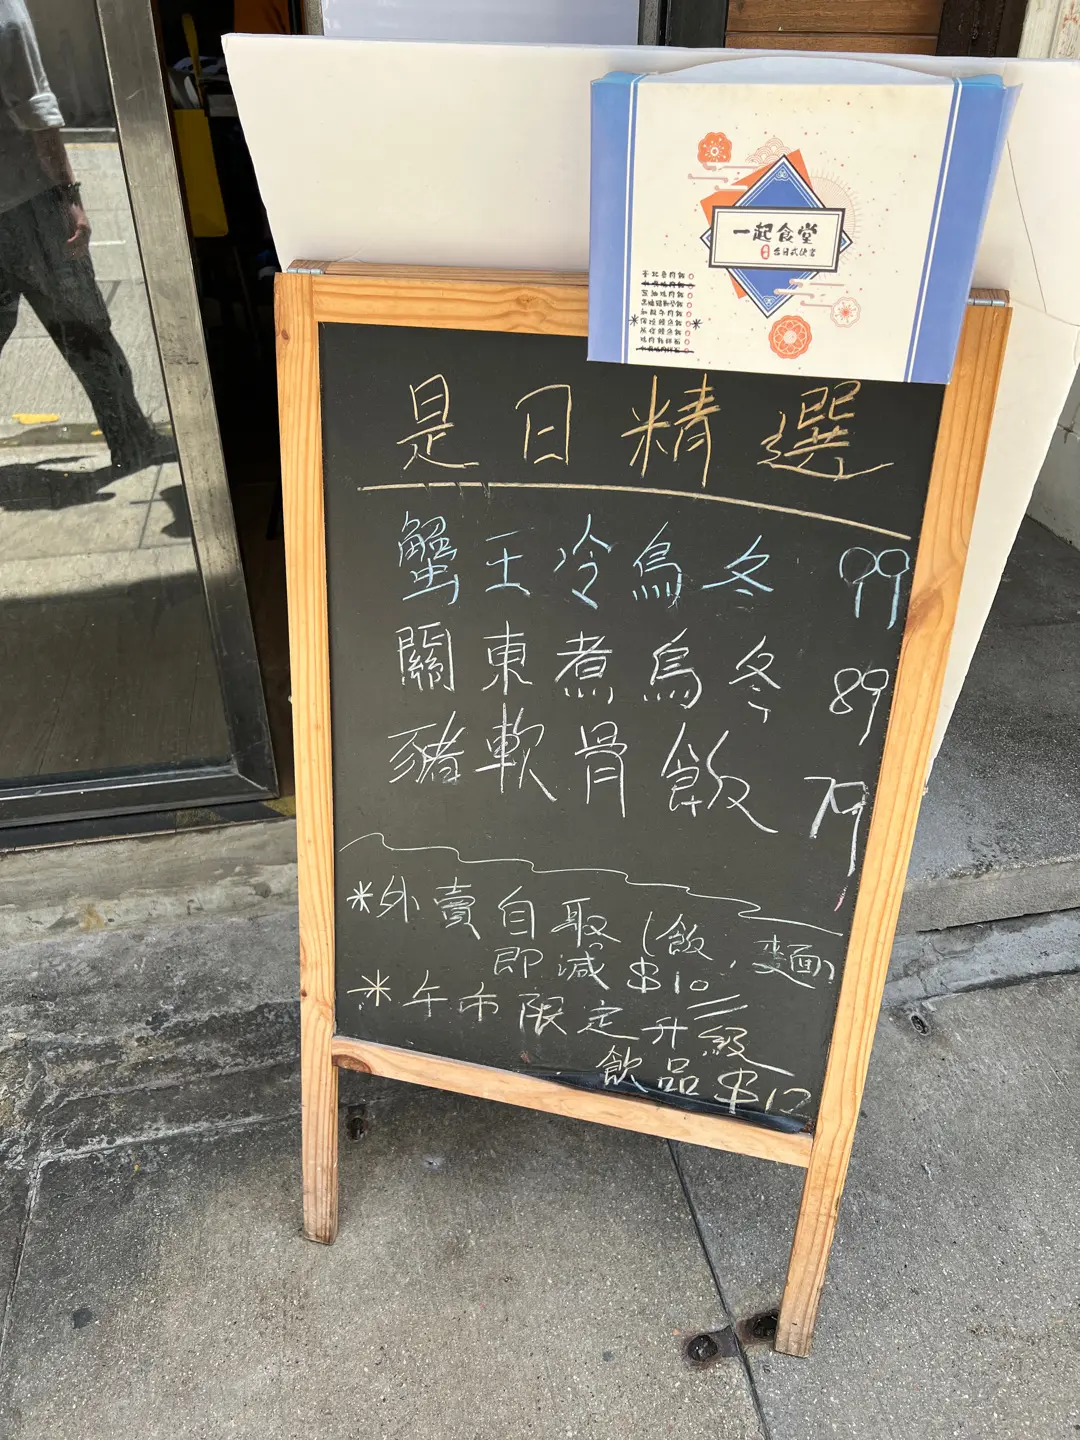 一起食堂
台日式便當
是日精選
蟹王冷烏冬 99
關東煮烏冬 89
豬軟骨飯 79
*外賣自取(飯、麵)
即減$10
*午市限定升級
飲品$12